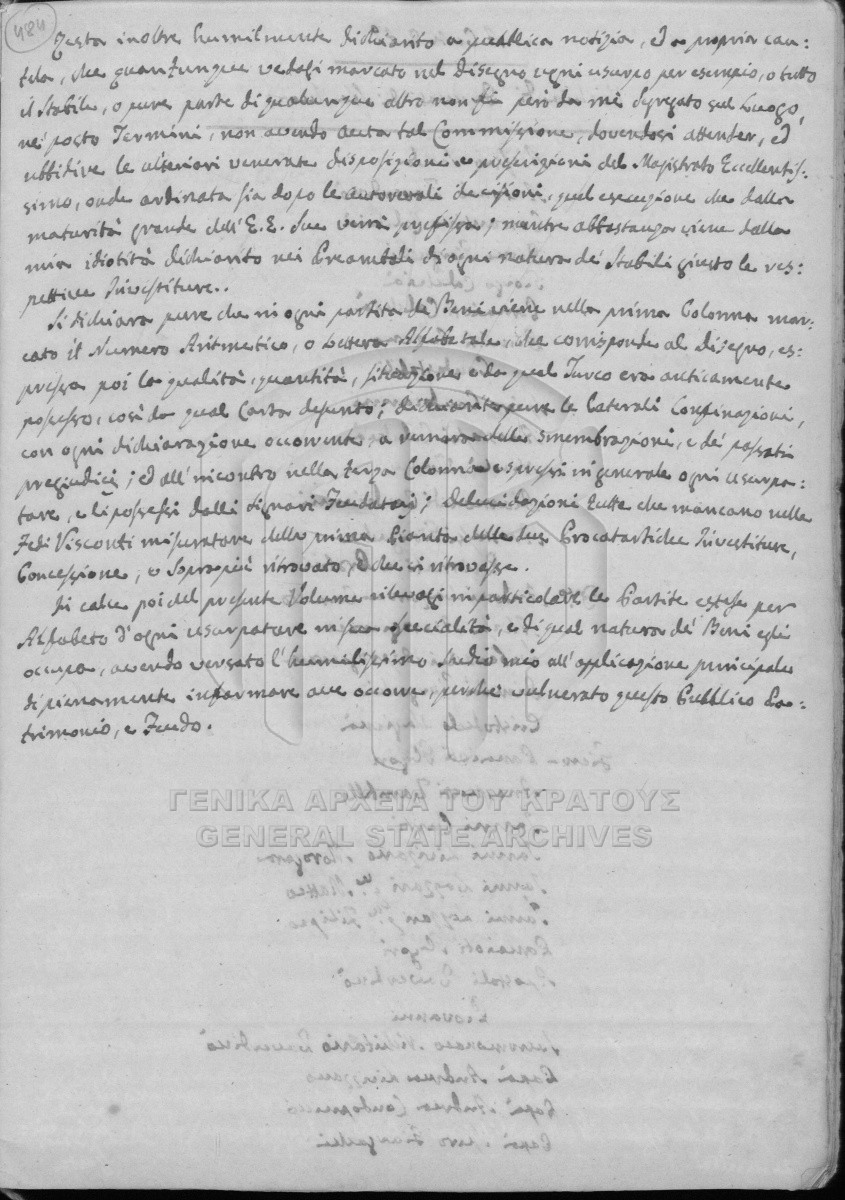 484
Resta inoltre humilmente dichiarito a pubblica notizia, ed a propria cau=
tela, che quantunque vedasi marcato nel disegno ogni usurpo per esempio, o tutto
il Stabile, o pure parte di qualunque altro non fu però da me segregato sul Luogo,
nè posto Termini, non avendo avuta tal Commissione, dovendosi attender, ed
ubbidire le ulteriori venerate disposizioni e prescrizioni del Magistrato Eccellentis=
simo, onde ordinata sia dopo le autorevoli decisioni, quel esecuzione che dalla
maturità grande dell' E. E. Sue verrà prefissa; mentre abbastanza viene dalla
mia idiotità dichiarito nei Preamboli di ogni natura de' Stabili giusto le res=
pettive Investiture..
Si dichiara pure che in ogni partita de' Beni viene nella prima Colonna mar=
cato il Numero Aritmetico, o Lettera Alfabetale, che corrisponde al disegno, es=
pressa poi la qualità, quantità, situazione e da qual Turco era anticamente
possesso, così da qual Carta desunto; dichiarite pure le Laterali Confinazioni,
con ogni dichiarazione occorrente, a numero delle smembrazioni, e de' passati
pregiudicj; ed all' incontro nella terza Colonna espressi in generale ogni usurpa=
tore, e li possessi dalli Signori Feudatarj; delucidazioni tutte che mancano nella
Fedi Visconti misuratore della prima Pianta delle due Procatartiche Investiture,
Concessione, o Soprapiù ritrovato, e che si ritrovasse.
In calce poi del presente Volume rilevasi in particolare le Partite estese per
Alfabeto d' ogni usurpatore in sua specialità, e di qual natura de' Beni egli
occupa, avendo versato l' humilissimo studio mio all' applicazione principale
di pienamente informare ove occorre, perchè vulnerato questo Pubblico Pa=
trimonio, e Feudo.
ΓΕΝΙΚΑ ΑΡΧΕΙΑ ΤΟΥ ΚΡΑΤΟΥΣ
GENERAL STATE ARCHIVES